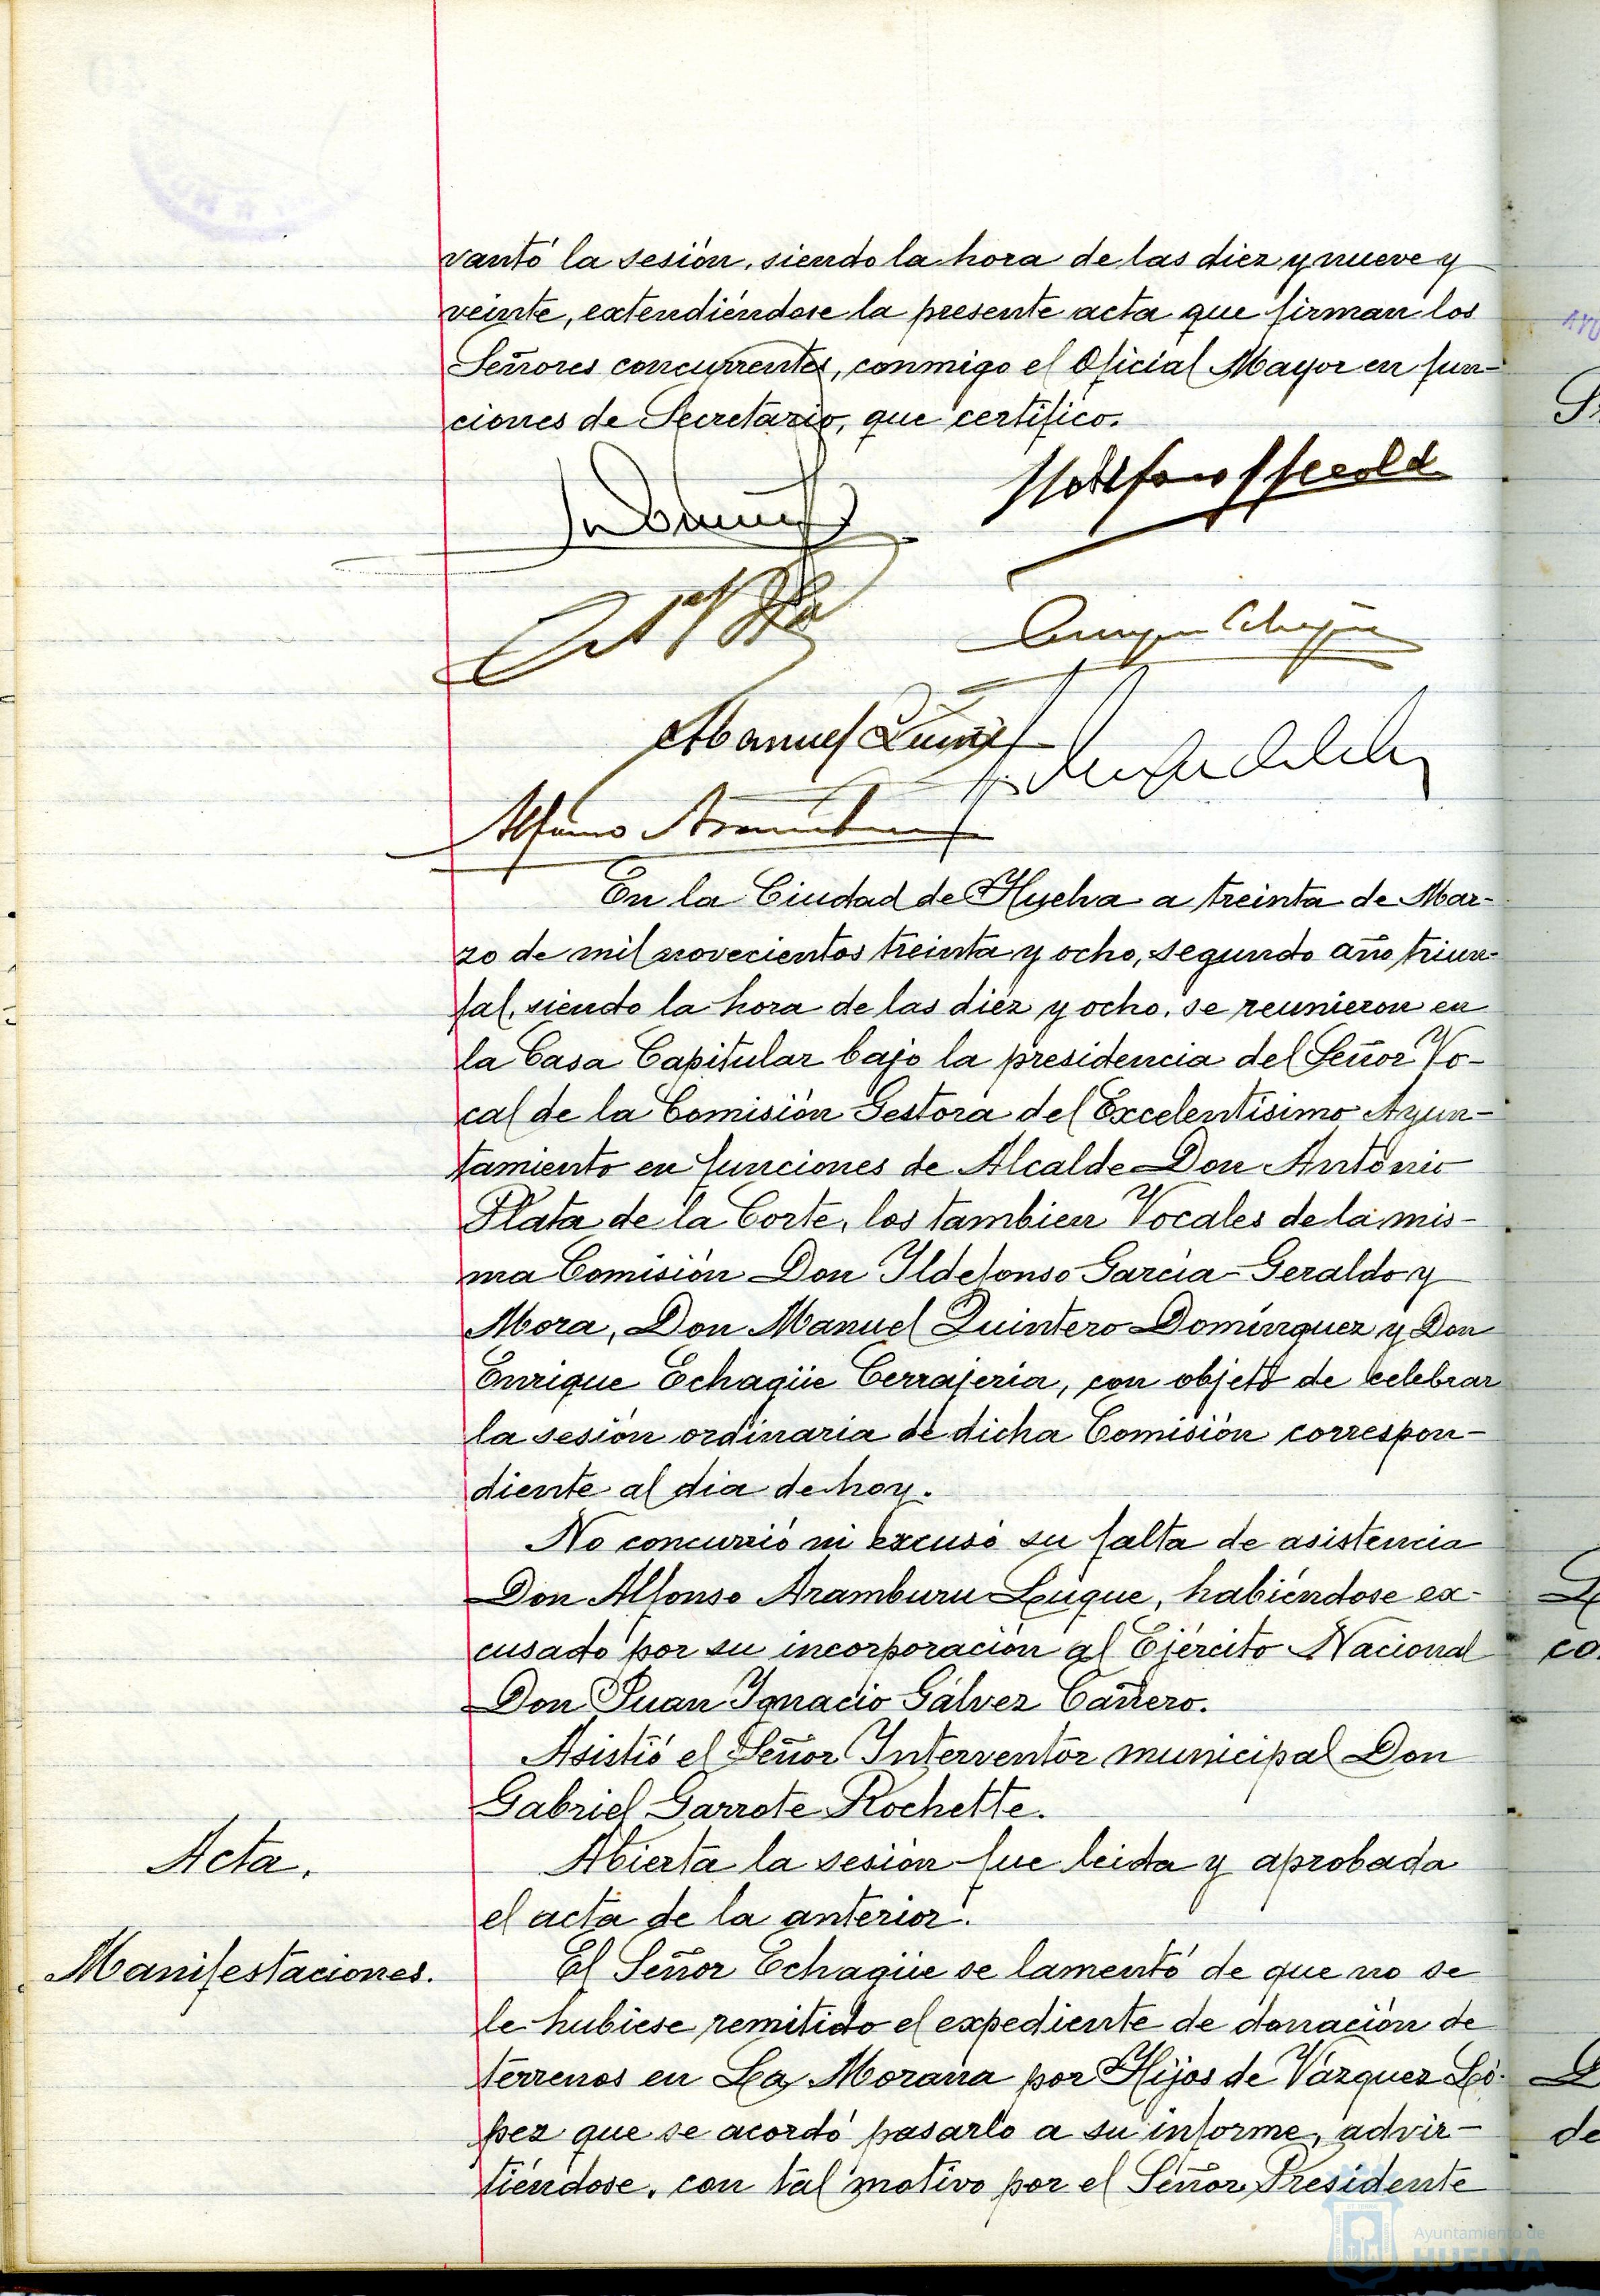 vantó la sesión, siendo la hora de las diez y nueve y
veinte, extendiéndose la presente acta que firman los
Señores concurrentes, conmigo el Oficial Mayor en fun-
ciones de Secretario, que certifico.
Manuel
Alfonso Aramburu
En la Ciudad de Huelva a treinta de Mar-
zo de mil novecientos treinta y ocho, segundo año triun-
fal, siendo la hora de las diez y ocho, se reunieron en
la Casa Capitular bajo la presidencia del Señor Vo-
cal de la Comisión Gestora del Excelentísimo Ayun-
tamiento en funciones de Alcalde Don Antonio
Plata de la Corte, los tambien Vocales de la mis-
ma Comisión Don Ildefonso García-Geraldo y
Mora, Don Manuel Quintero Domínguez y Don
Enrique Echagüe Cerrajeria, con objeto de celebrar
la sesión ordinaria de dicha Comisión correspon-
diente al dia de hoy.
No concurrió ni excusó su falta de asistencia
Don Alfonso Aramburu Luque, habiéndose ex-
cusado por su incorporación al Ejército Nacional
Don Juan Ignacio Gálvez Cañero.
Asistió el Señor Interventor municipal Don
Gabriel Garrote Rochette.
Acta.
Abierta la sesión fue leida y aprobada
el acta de la anterior.
Manifestaciones.
El Señor Echagüe se lamentó de que no se
le hubiese remitido el expediente de donación de
terrenos en La Morana por Hijos de Vázquez Ló-
pez que se acordó pasarlo a su informe, advir-
tiéndose, con tal motivo por el Señor Presidente
Ayuntamiento de
HUELVA